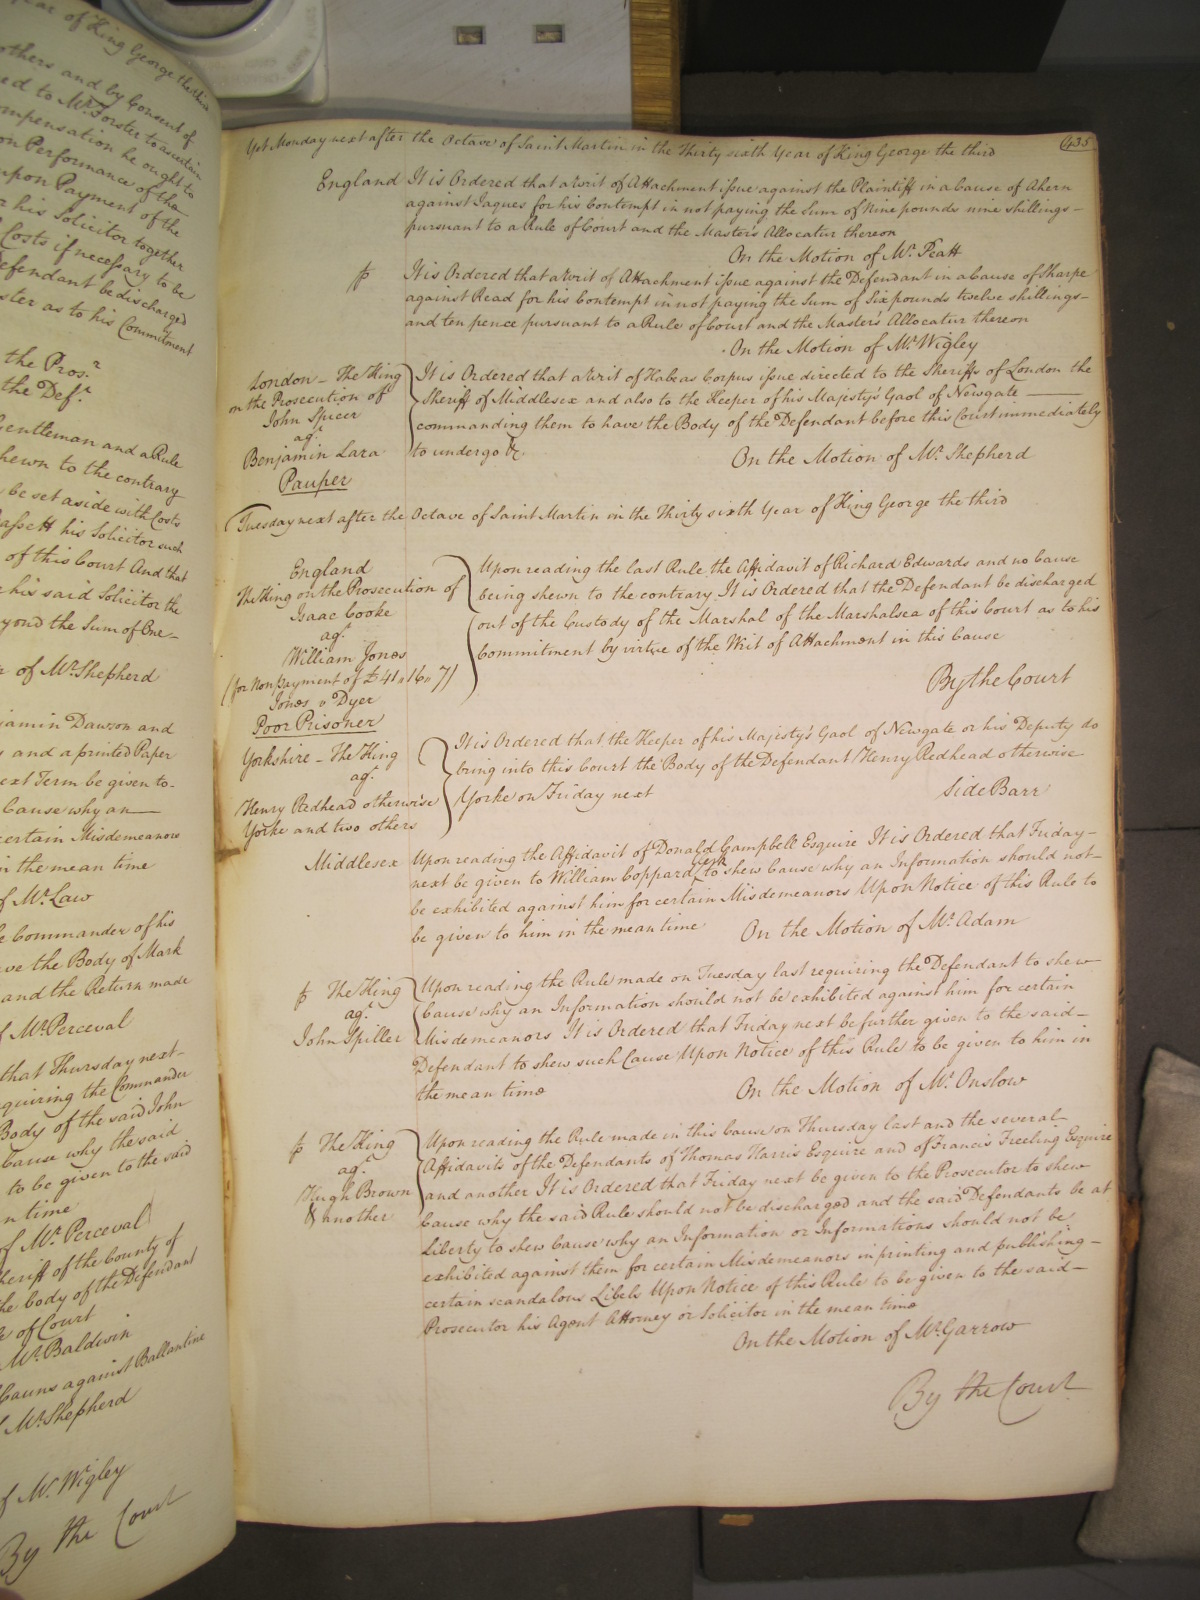 Year of King George the third
others and by Consent of
ed to Mr. Forster to ascertain
ompensation he ought to
on Performance of the
upon Payment of the
r his Solicitor together
Costs if necessary to be
efendant be discharged
ster as to his Commitment
the Pros.r
the Def.t
Gentleman and a Rule
hewn to the contrary
be set aside with Costs
his Solicitor such
of this Court And that
his said Solicitor the
yond the Sum of One-
n of Mr. Shepherd
jamin Dawson and
and a printed Paper
ext Term be given to-
Cause why an—
certain Misdemeanors
in the mean time
of Mr. Law
e Commander of his
ave the Body of Mark
and the Return made
of Mr. Perceval
that Thursday next-
quiring the Commander
Body of the said John
Cause why the said
to be given to the said
n time
of Mr. Perceval
heriff of the County of
the body of the Defendant
e of Court
Mr. Baldwin
against Ballantine
Mr. Shepherd
of Mr. Wigley
By the Court
Yet Monday next after the Octave of Saint Martin in the Thirty sixth Year of King George the third
435
England It is Ordered that a Writ of Attachment issue against the Plaintiff in a Cause of Ahern
against Jaques for his Contempt in not paying the Sum of Nine pounds nine shillings-
pursuant to a Rule of Court and the Master's Allocatur thereon
On the Motion of Mr. Peatt
It is Ordered that a Writ of Attachment issue against the Defendant in a Cause of Sharpe
against Read for his Contempt in not paying the Sum of Six pounds twelve shillings-
and ten pence pursuant to a Rule of Court and the Master's Allocatur thereon
On the Motion of Mr. Wigley
London – The King
on the Prosecution of
John Spicer
ag.t
Benjamin Lara
Pauper
It is Ordered that a Writ of Habeas Corpus issue directed to the Sheriffs of London the
Sheriff of Middlesex and also to the Keeper of his Majesty's Gaol of Newgate —
commanding them to have the Body of the Defendant before this Court immediately
to undergo &c.
On the Motion of Mr. Shepherd
Tuesday next after the Octave of Saint Martin in the Thirty sixth Year of King George the third
England
The King on the Prosecution of
Isaac Cooke
ag.t
William Jones
(for Nonpayment of £41 " 16 " 7)
Jones v Dyer
Poor Prisoner
Upon reading the last Rule the Affidavit of Richard Edwards and no Cause
being shewn to the contrary It is Ordered that the Defendant be discharged
out of the Custody of the Marshal of the Marshalsea of this Court as to his
Commitment by virtue of the Writ of Attachment in this Cause
By the Court
Yorkshire – The King
ag.t
Henry Redhead otherwise
Yorke and two others
It is Ordered that the Keeper of his Majesty's Gaol of Newgate or his Deputy do
bring into this Court the Body of the Defendant Henry Redhead otherwise
Yorke on Friday next
Side Barr
Middlesex Upon reading the Affidavit of Donald Campbell Esquire It is Ordered that Friday-
next be given to William Coppard to shew Cause why an Information should not-
be exhibited against him for certain Misdemeanors Upon Notice of this Rule to
be given to him in the mean time
On the Motion of Mr. Adam
The King
ag.t
John Spiller
Upon reading the Rule made on Tuesday last requiring the Defendant to shew
Cause why an Information should not be exhibited against him for certain
Misdemeanors It is Ordered that Friday next be further given to the said-
Defendant to shew such Cause Upon Notice of this Rule to be given to him in
the mean time
On the Motion of Mr. Onslow
The King
ag.t
Hugh Brown
& another
Upon reading the Rule made in this Cause on Thursday last and the several
Affidavits of the Defendants of Thomas Harris Esquire and of Francis Freeling Esquire
and another It is Ordered that Friday next be given to the Prosecutor to shew
Cause why the said Rule should not be discharged and the said Defendants be at
Liberty to shew Cause why an Information or Informations should not be
exhibited against them for certain Misdemeanors in printing and publishing-
certain scandalous Libels Upon Notice of this Rule to be given to the said-
Prosecutor his Agent Attorney or Solicitor in the mean time
On the Motion of Mr. Garrow
By the Court